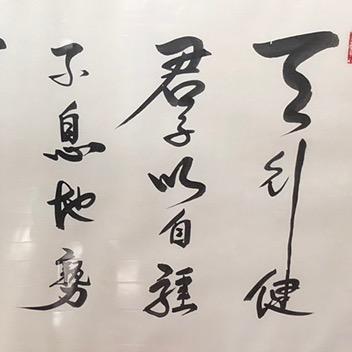 天行健
君子以自强
不息地势